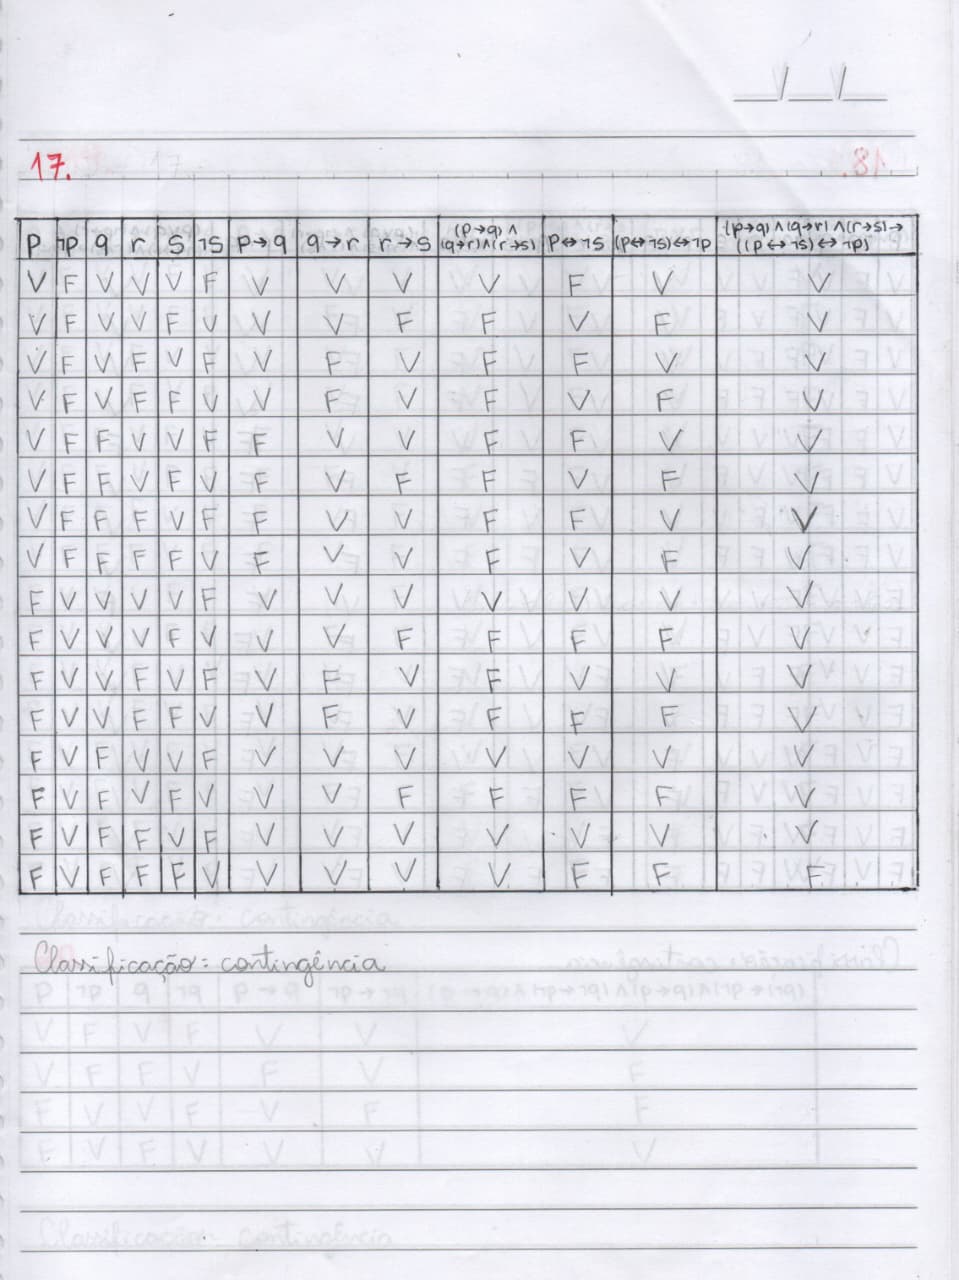 17.
p ¬p q r s ¬s p→q q→r r→s (p→q) ∧ (q→r) ∧ (r→s) p↔¬s (p↔¬s)↔¬p (p→q) ∧ (q→r) ∧ (r→s)→ ((p↔¬s)↔¬p)
V F V V V F V V V V F V V
V F V V F V V V F F V F V
V F V F V F V F V F F V V
V F V F F V V F V F V F V
V F F V V F F V V F F V V
V F F V F V F V F F V F V
V F F F V F F V V F F V V
V F F F F V F V V F V F V
F V V V V F V V V V V V V
F V V V F V V V F F F F V
F V V F V F V F V F V V V
F V V F F V V F V F F F V
F V F V V F V V V V V V V
F V F V F V V V F F F F V
F V F F V F V V V V V V V
F V F F F V V V V V F F F
Classificação: contingência